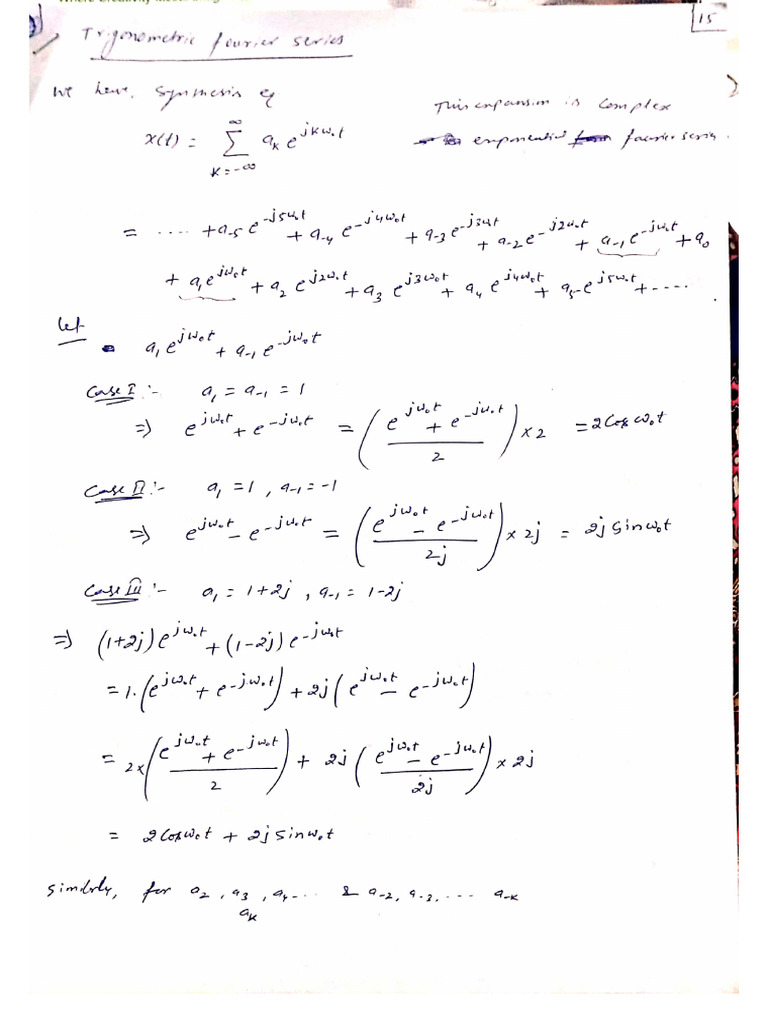 15
Trigonometric fourier series
we have, synthesis eq
This expansion is complex
exponential fourier series.
x(t) = ∑_{k=-∞}^{∞} a_k e^{jkω₀t}
= .... + a₋₅ e^{-j5ω₀t} + a₋₄ e^{-j4ω₀t} + a₋₃ e^{-j3ω₀t} + a₋₂ e^{-j2ω₀t} + a₋₁ e^{-jω₀t} + a₀
+ a₁ e^{jω₀t} + a₂ e^{j2ω₀t} + a₃ e^{j3ω₀t} + a₄ e^{j4ω₀t} + a₅ e^{j5ω₀t} + ....
let
a₁ e^{jω₀t} + a₋₁ e^{-jω₀t}
Case I :- a₁ = a₋₁ = 1
⇒ e^{jω₀t} + e^{-jω₀t} = ((e^{jω₀t} + e^{-jω₀t})/2) × 2 = 2 Cos ω₀t
Case II :- a₁ = 1, a₋₁ = -1
⇒ e^{jω₀t} - e^{-jω₀t} = ((e^{jω₀t} - e^{-jω₀t})/2j) × 2j = 2j sin ω₀t
Case III :- a₁ = 1+2j, a₋₁ = 1-2j
⇒ (1+2j) e^{jω₀t} + (1-2j) e^{-jω₀t}
= 1.(e^{jω₀t} + e^{-jω₀t}) + 2j(e^{jω₀t} - e^{-jω₀t})
= 2×((e^{jω₀t} + e^{-jω₀t})/2) + 2j((e^{jω₀t} - e^{-jω₀t})/2j) × 2j
= 2 Cos ω₀t + 2j sin ω₀t
simlrly, for a₂, a₃, a₄.... & a₋₂, a₋₃, .... a₋k
a_k